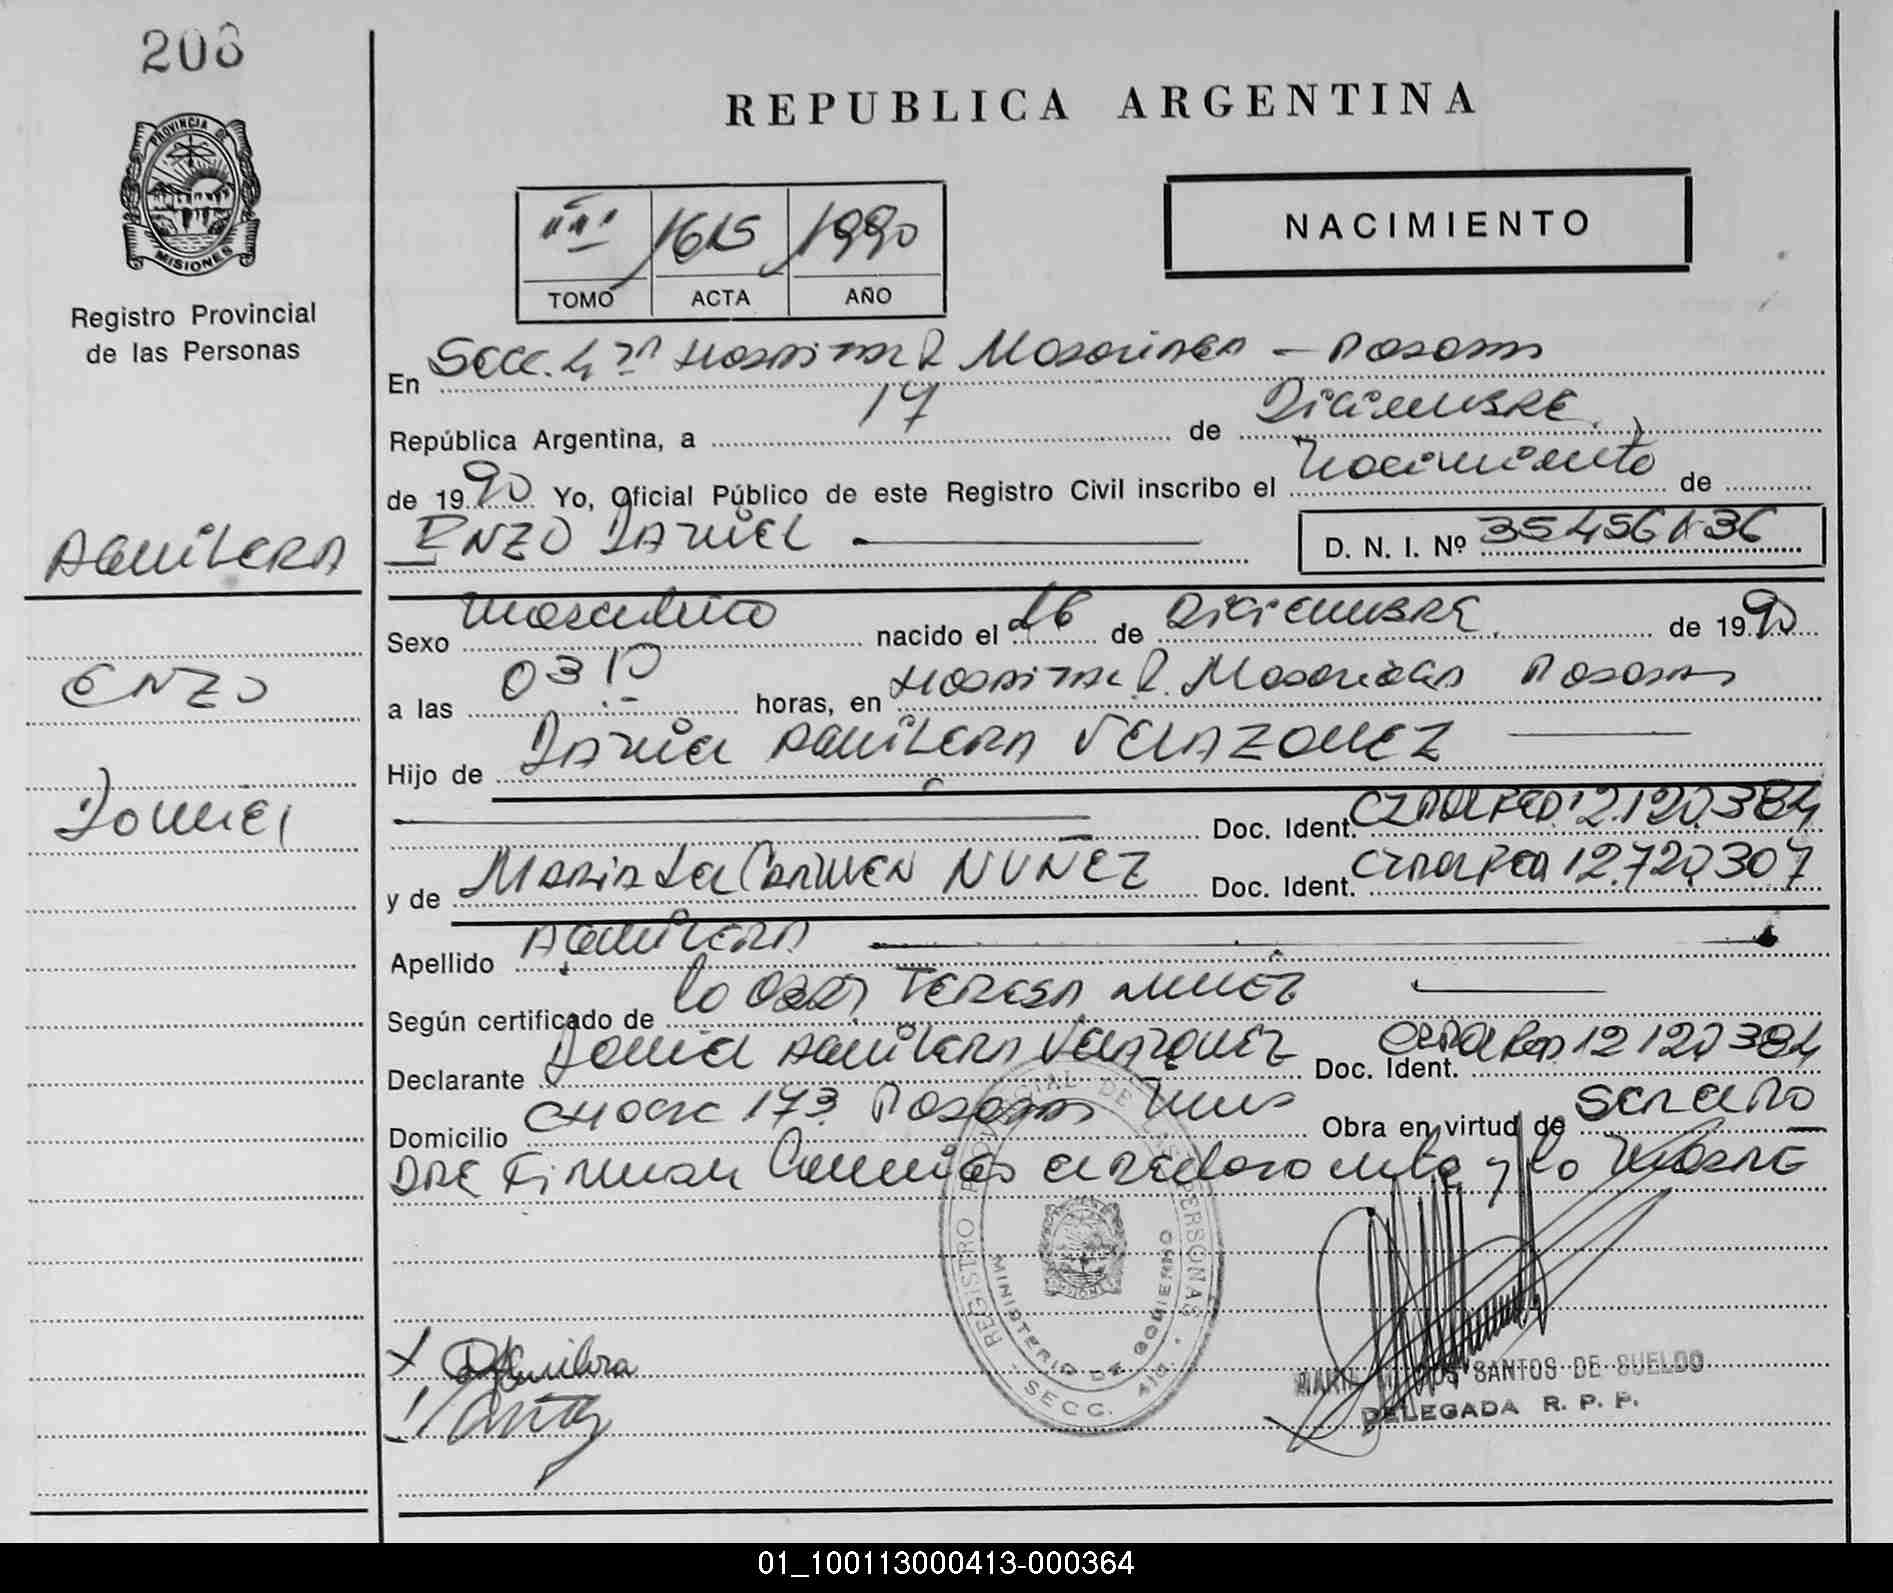 208
PROVINCIA DE
MISIONES
Registro Provincial
de las Personas
REPUBLICA ARGENTINA
NACIMIENTO
1615 1990
TOMO ACTA AÑO
En Secc. 4ta Hospital R. Madariaga - Posadas
República Argentina, a 17 de Diciembre
de 1990 Yo, Oficial Público de este Registro Civil inscribo el Nacimiento de
ENZO DANIEL D. N. I. Nº
AGUILERA
ENZO
Daniel
Sexo Masculino nacido el 16 de Diciembre de 1990
a las 0310 horas, en Hospital R. Madariaga Posadas
Hijo de Daniel AGUILERA VELAZQUEZ
Doc. Ident. 12.120.384
y de Maria del Carmen NUÑEZ Doc. Ident. 12.720.307
Apellido AGUILERA
Según certificado de la Obst. TERESA
Declarante Daniel Aguilera Velazquez Doc. Ident. 12120384
Domicilio 173 Posadas Mnes Obra en virtud de ser el Pa
DRE Firman conmigo el declarante y la MADRE
REGISTRO PROVINCIAL DE LAS PERSONAS
MINISTERIO DE GOBIERNO
SECC. 4ta
DAguilera
SANTOS DE SUELDO
DELEGADA R. P. P.
01_100113000413-000364